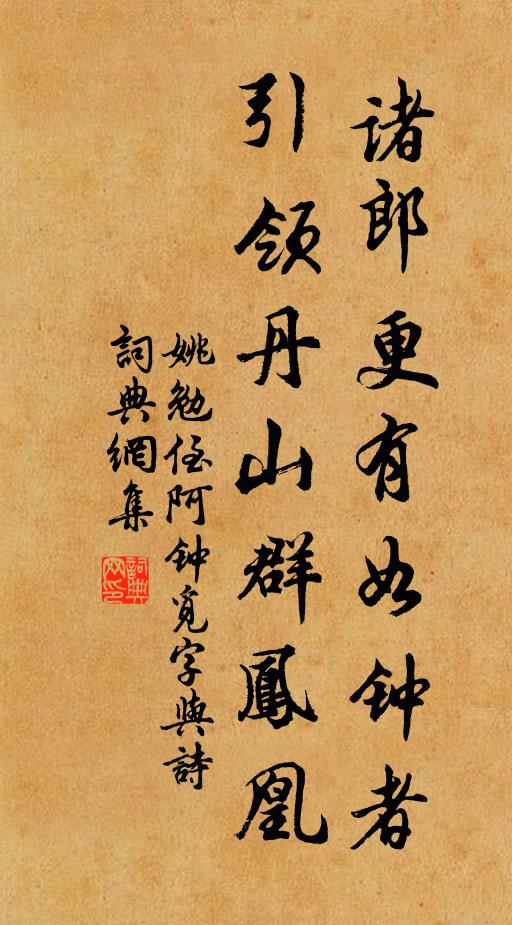 诸郎更有如钟者
引领丹山群鳳凰
姚勉侄阿钟觅字與詩
詞典網集
詞典网印